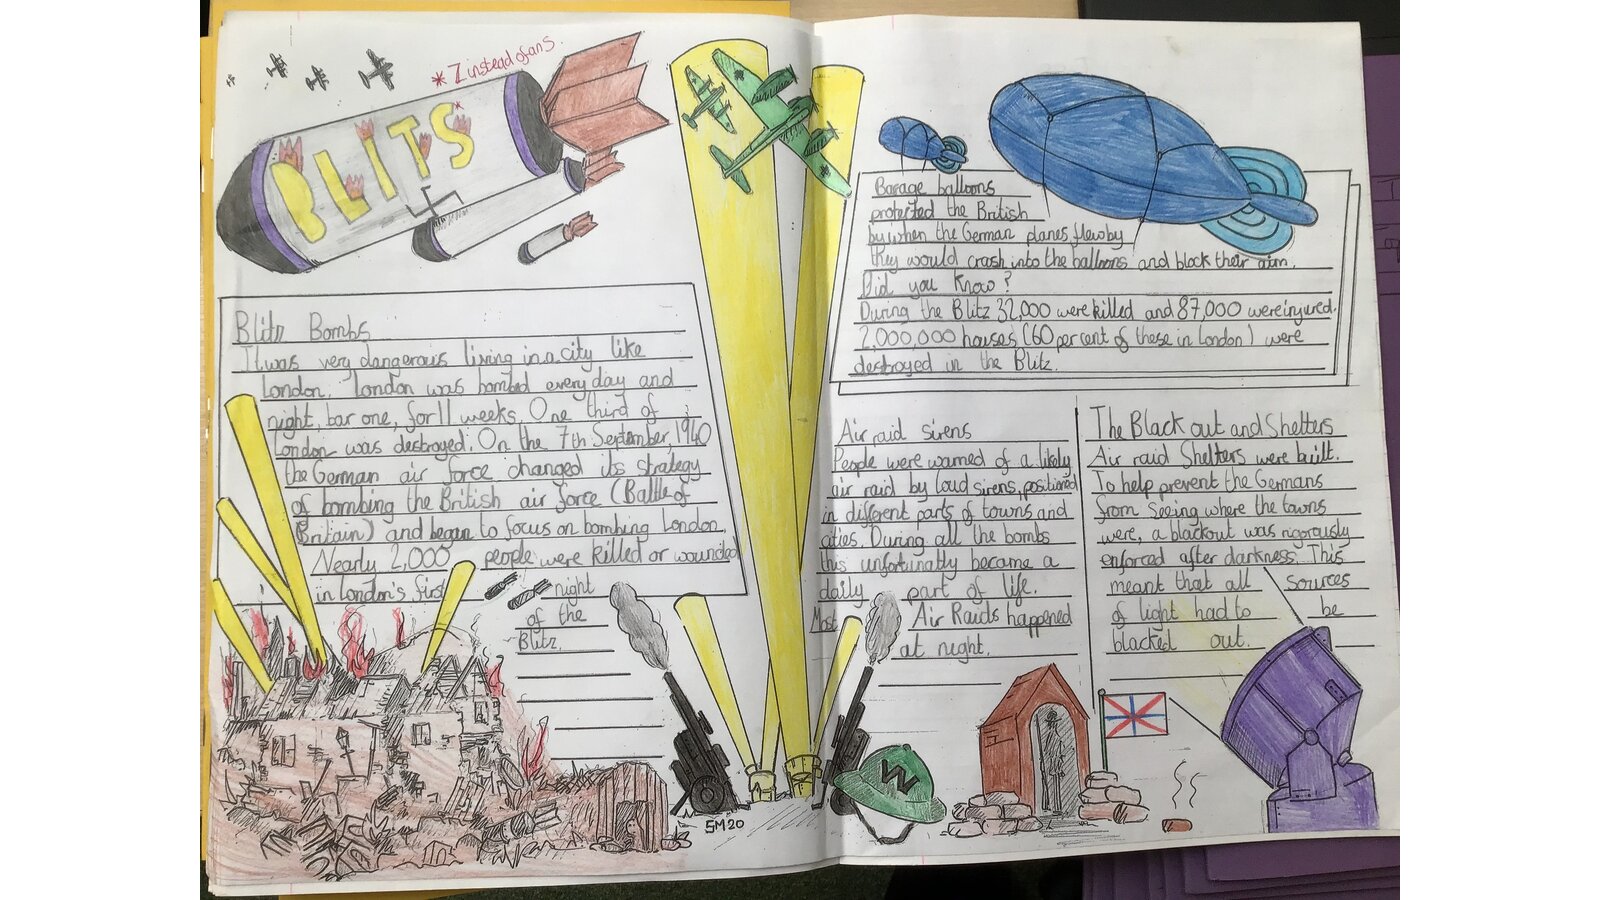 * Z instead of an S.
BLITS*
Blitz Bombs
It was very dangerous living in a city like
London. London was bombed every day and
night, bar one, for 11 weeks. One third of
London was destroyed. On the 7th September, 1940
the German air force changed its strategy
of bombing the British air force (Battle of
Britain) and began to focus on bombing London.
Nearly 2,000 people were killed or wounded
in London's first night
of the
Blitz.
Barage balloons
protected the British
by when the German planes flew by
they would crash into the balloons and block their aim.
Did you know?
During the Blitz 32,000 were killed and 87,000 were injured.
2,000,000 houses (60 percent of these in London) were
destroyed in the Blitz.
Air raid sirens
People were warned of a likely
air raid by loud sirens, positioned
in different parts of towns and
cities. During all the bombs
this unfortunatly became a
daily part of life.
Most Air Raids happened
at night.
The Black out and Shelters
Air raid Shelters were built.
To help prevent the Germans
from seeing where the towns
were, a blackout was rigorously
enforced after darkness. This
meant that all sources
of light had to be
blacked out.
W
SM20